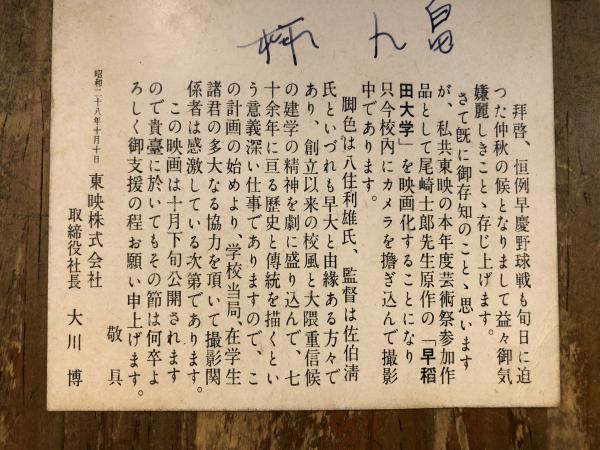 拝啓、恒例早慶野球戦も旬日に迫
つた仲秋の候となりまして益々御気
嫌麗しきことゝ存じ上げます。
さて既に御存知のことゝ思います
が、私共東映の本年度芸術祭参加作
品として尾崎士郎先生原作の「早稲
田大学」を映画化することになり
只今校内にカメラを擔ぎ込んで撮影
中であります。
脚色は八住利雄氏、監督は佐伯清
氏といづれも早大と由緣ある方々で
あり、創立以来の校風と大隈重信候
の建学の精神を劇に盛り込んで、七
十余年に亘る歴史と傳統を描くとい
う意義深い仕事でありますので、こ
の計画の始めより、学校当局、在学生
諸君の多大なる協力を頂いて撮影関
係者は感激している次第であります。
この映画は十月下旬公開されます
ので貴臺に於いてもその節は何卒よ
ろしく御支援の程お願い申上げます。
敬具
昭和二十八年十月十日
東映株式会社
取締役社長 大川博